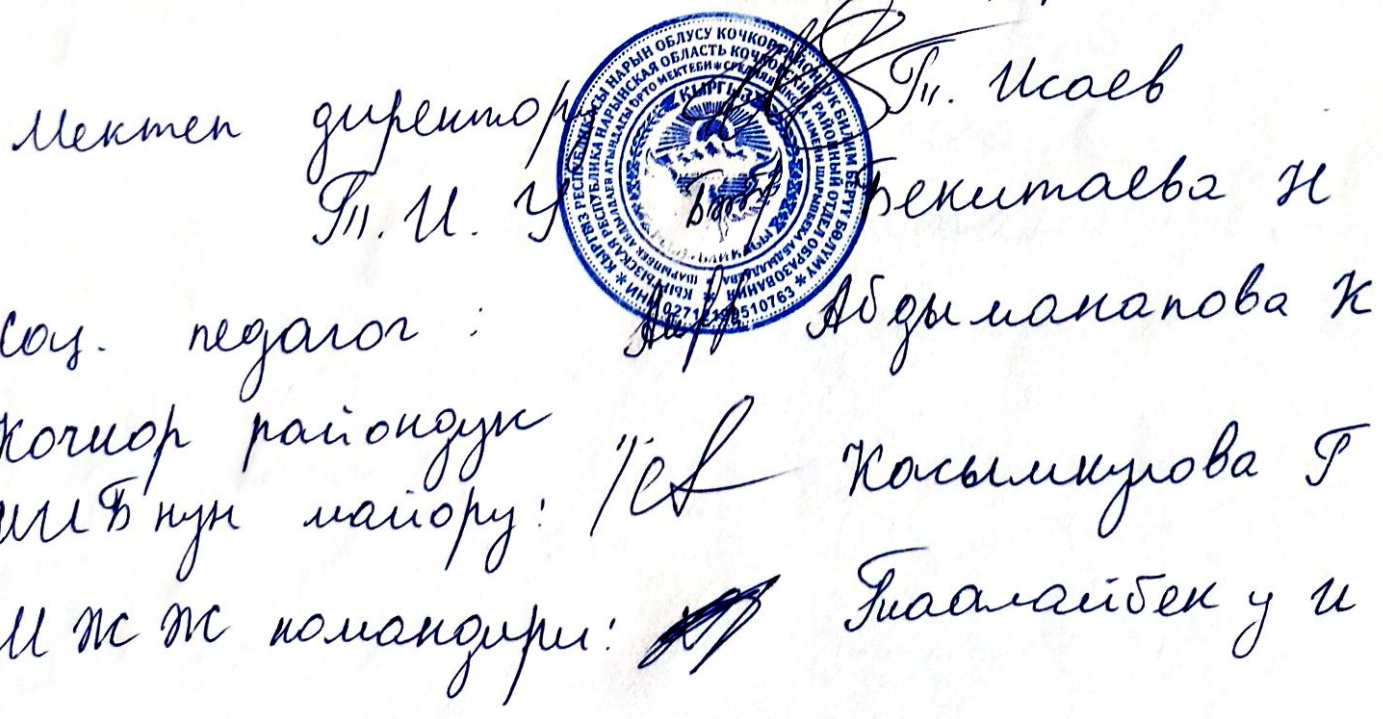 Мектеп директору Т. Исаев
Т. И. У Бекитаева Н
Соц. педагог : Абдыманапова К
Кочкор райондук
ИИБнун майору: Касымкулова Г
МЖЖ командири: Таалайбек у И
КЫРГЫЗ РЕСПУБЛИКАСЫ НАРЫН ОБЛУСУ КОЧКОР РАЙОНДУК БИЛИМ БЕРҮҮ БӨЛҮМҮ
КЫРГЫЗСКАЯ РЕСПУБЛИКА НАРЫНСКАЯ ОБЛАСТЬ КОЧКОРСКИЙ РАЙОННЫЙ ОТДЕЛ ОБРАЗОВАНИЯ